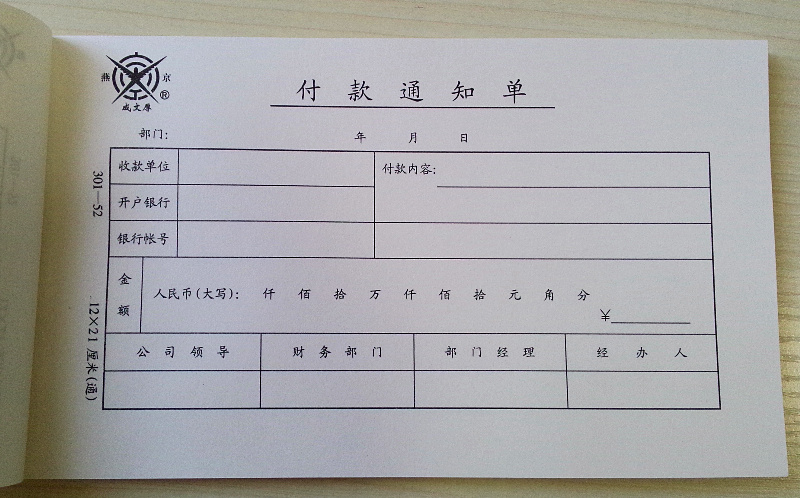 燕 京
®
成文厚
付款通知单
部门： 年 月 日
收款单位 付款内容：
开户银行
银行帐号
金额 人民币(大写)： 仟 佰 拾 万 仟 佰 拾 元 角 分
¥
公司领导 财务部门 部门经理 经办人
301—52
12×21厘米(通)